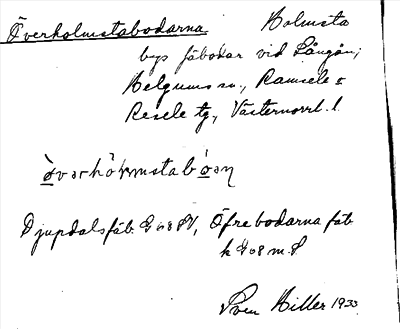 Överholmstabodarna. Holmsta
bys fäbodar vid Långån,
Helgums sn., Ramsele o
Resele tg., Västernorrl. l.
Djupdalsfäb. G 08 SV, Öfrebodarna fäb
k G 08 m.S
Sven Hiller 1933